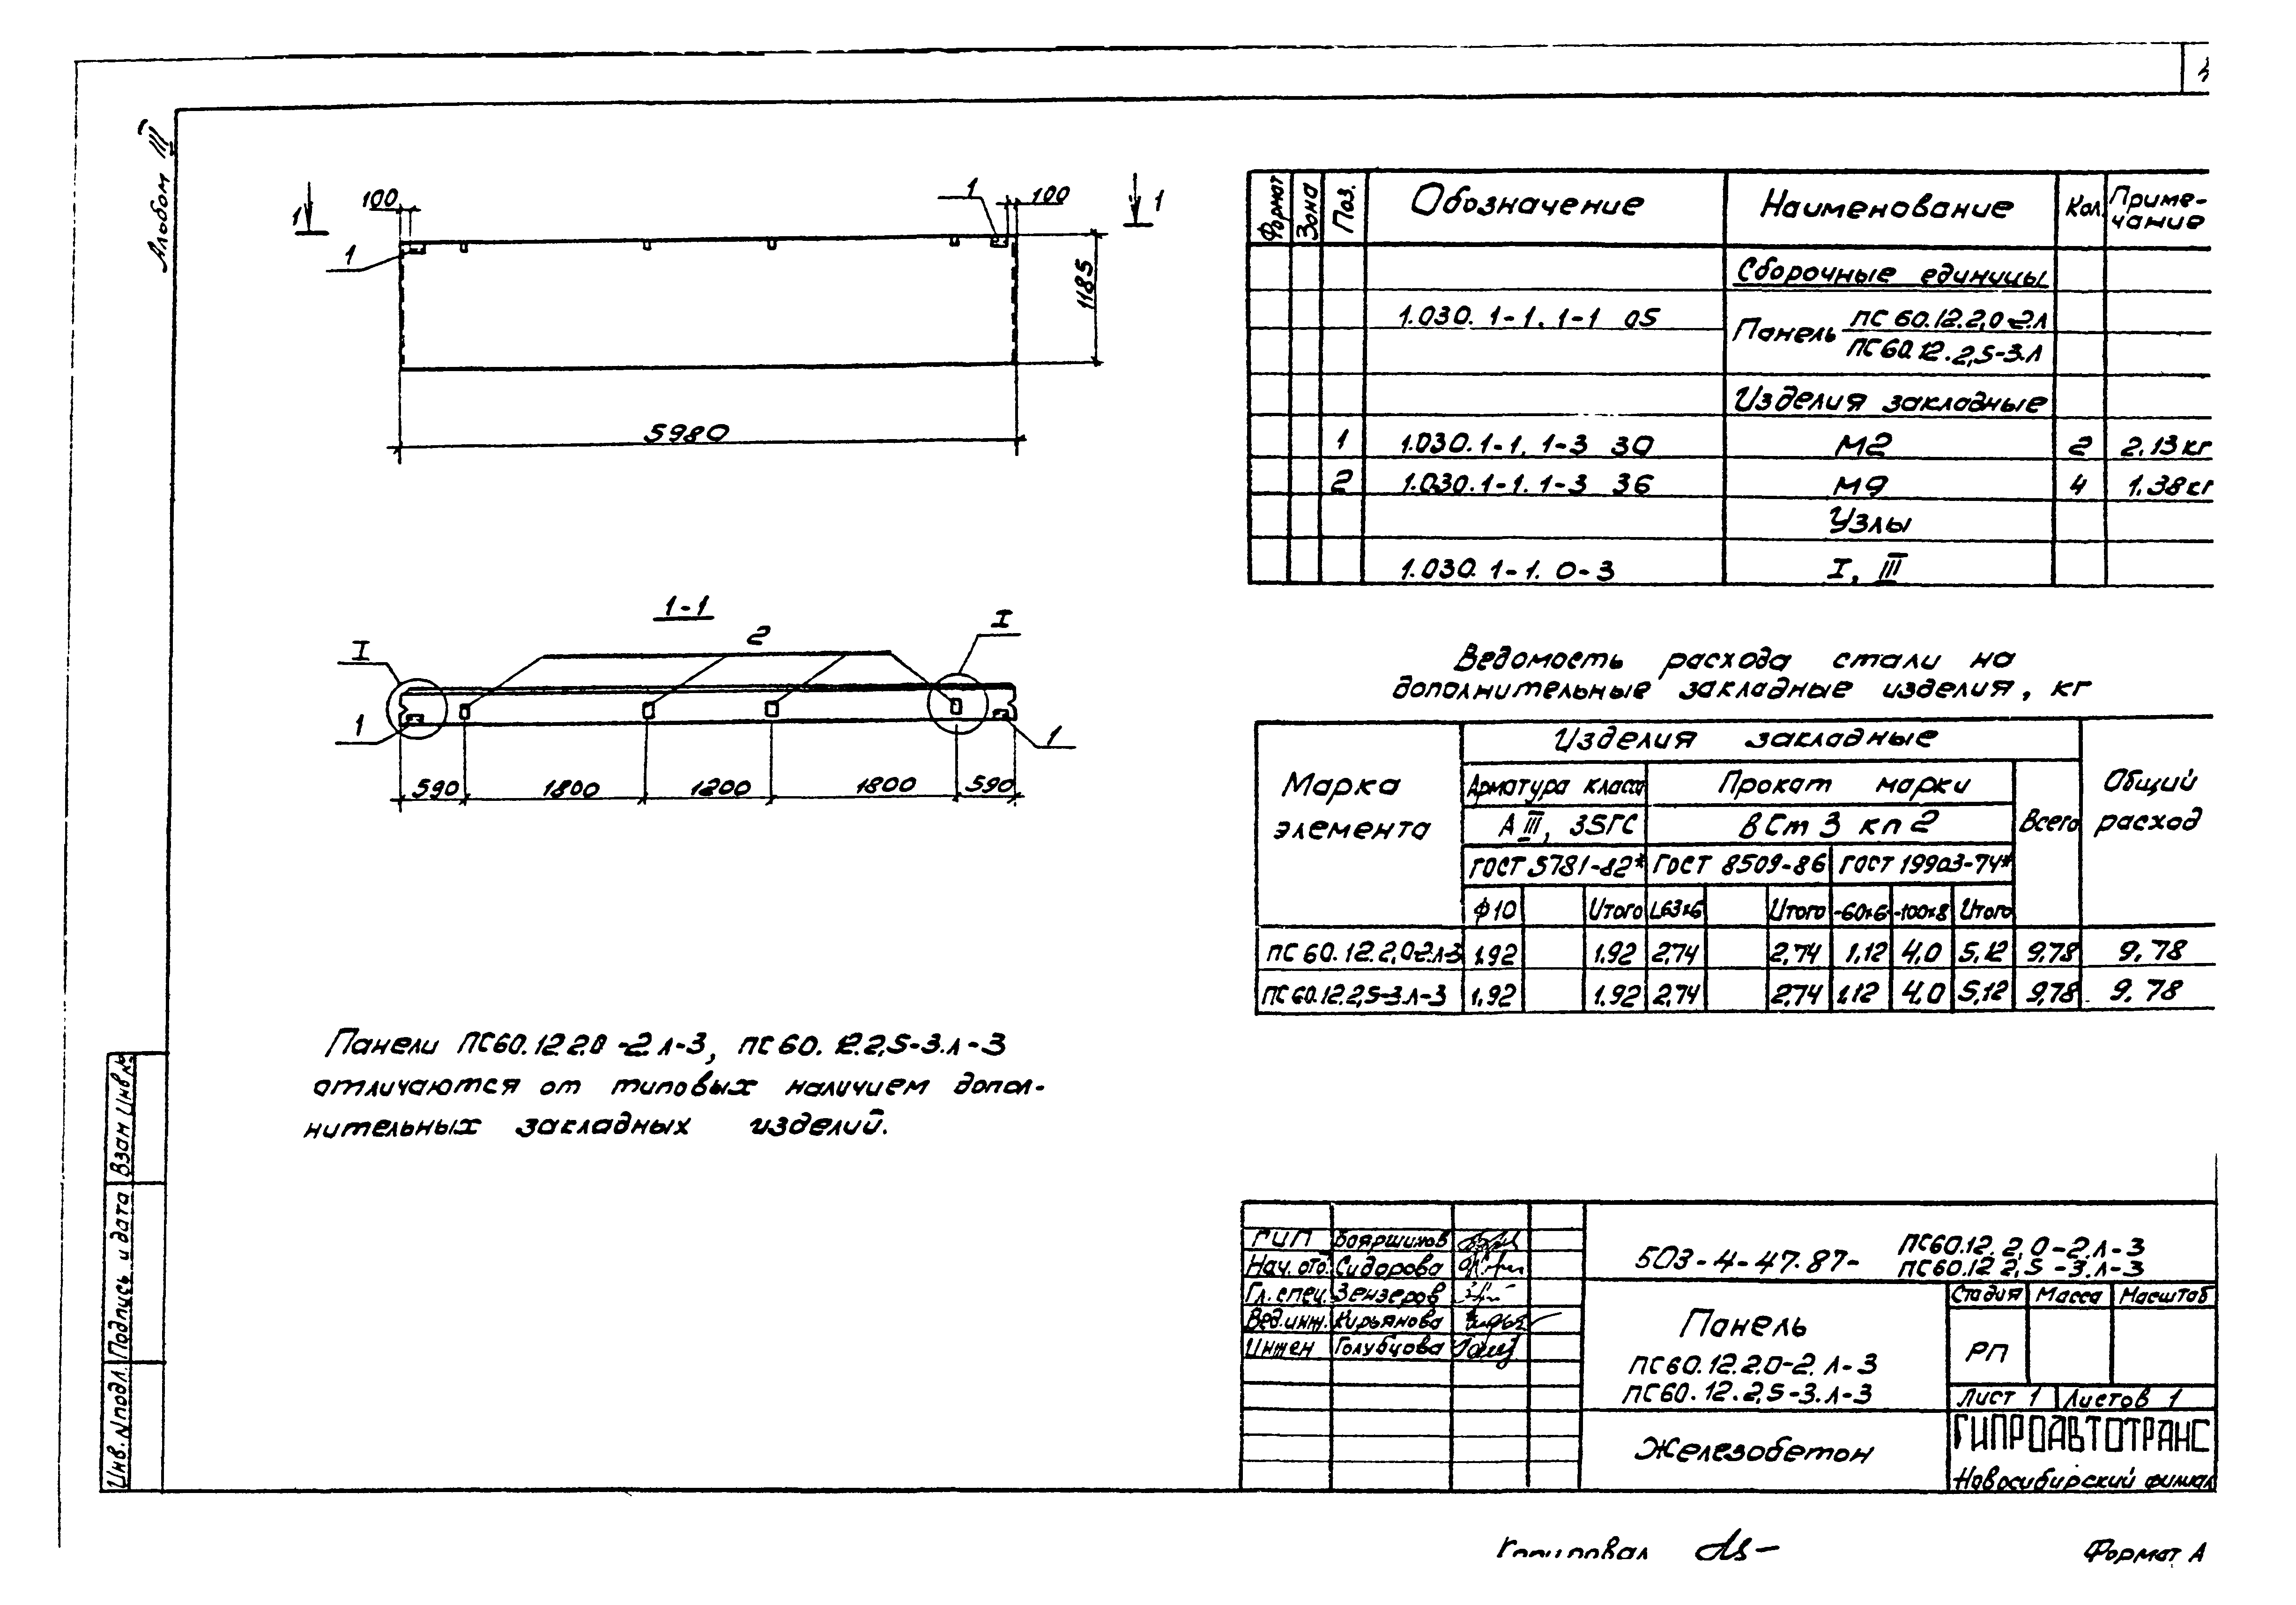 Альбом III
100
1
1
100
1
1
1
1185
5980
1-1
2
I
I
1
1
590
1800
1200
1800
590
Панели ПС60.12 2,0-2.л-3, ПС60.12.2,5-3.л-3
отличаются от типовых наличием допол-
нительных закладных изделий.
Формат
Зона
Поз.
Обозначение
Наименование
Кол
Приме-
чание
Сборочные единицы
1.030.1-1.1-1 05
Панель
ПС 60.12.2,0-2.л
ПС60.12.2,5-3.л
Изделия закладные
1 1.030.1-1.1-3 30 М2 2 2,13 кг
2 1.030.1-1.1-3 36 М9 4 1,38 кг
Узлы
1.030.1-1.0-3 I, III
Ведомость расхода стали на
дополнительные закладные изделия, кг
Марка
элемента
Изделия закладные
Общий
расход
Арматура класса
Прокат марки
Всего
А III, 35ГС
ВСт 3 кп 2
ГОСТ 5781-82* ГОСТ 8509-86 ГОСТ 19903-74*
ф10 Итого L63х6 Итого -60х6 -100х8 Итого
ПС 60.12.2,0-2.л-3 1,92 1,92 2,74 2,74 1,12 4,0 5,12 9,78 9,78
ПС60.12.2,5-3.л-3 1,92 1,92 2,74 2,74 1,12 4,0 5,12 9,78 9,78
Взам инв №
Подпись и дата
Инв.№подл.
ГИП Бояршинов
Нач. отд. Сидорова
Гл.спец. Зензеров
Вед.инж. Кирьянова
Инжен Голубцова
503-4-47.87-
ПС60.12.2,0-2.л-3
ПС60.12 2,5-3.л-3
Панель
ПС60.12.2.0-2.л-3
ПС60.12.2,5-3.л-3
Стадия Масса Масштаб
РП
Лист 1 Листов 1
Железобетон
ГИПРОАВТОТРАНС
Новосибирский филиал
Копировал
Формат А